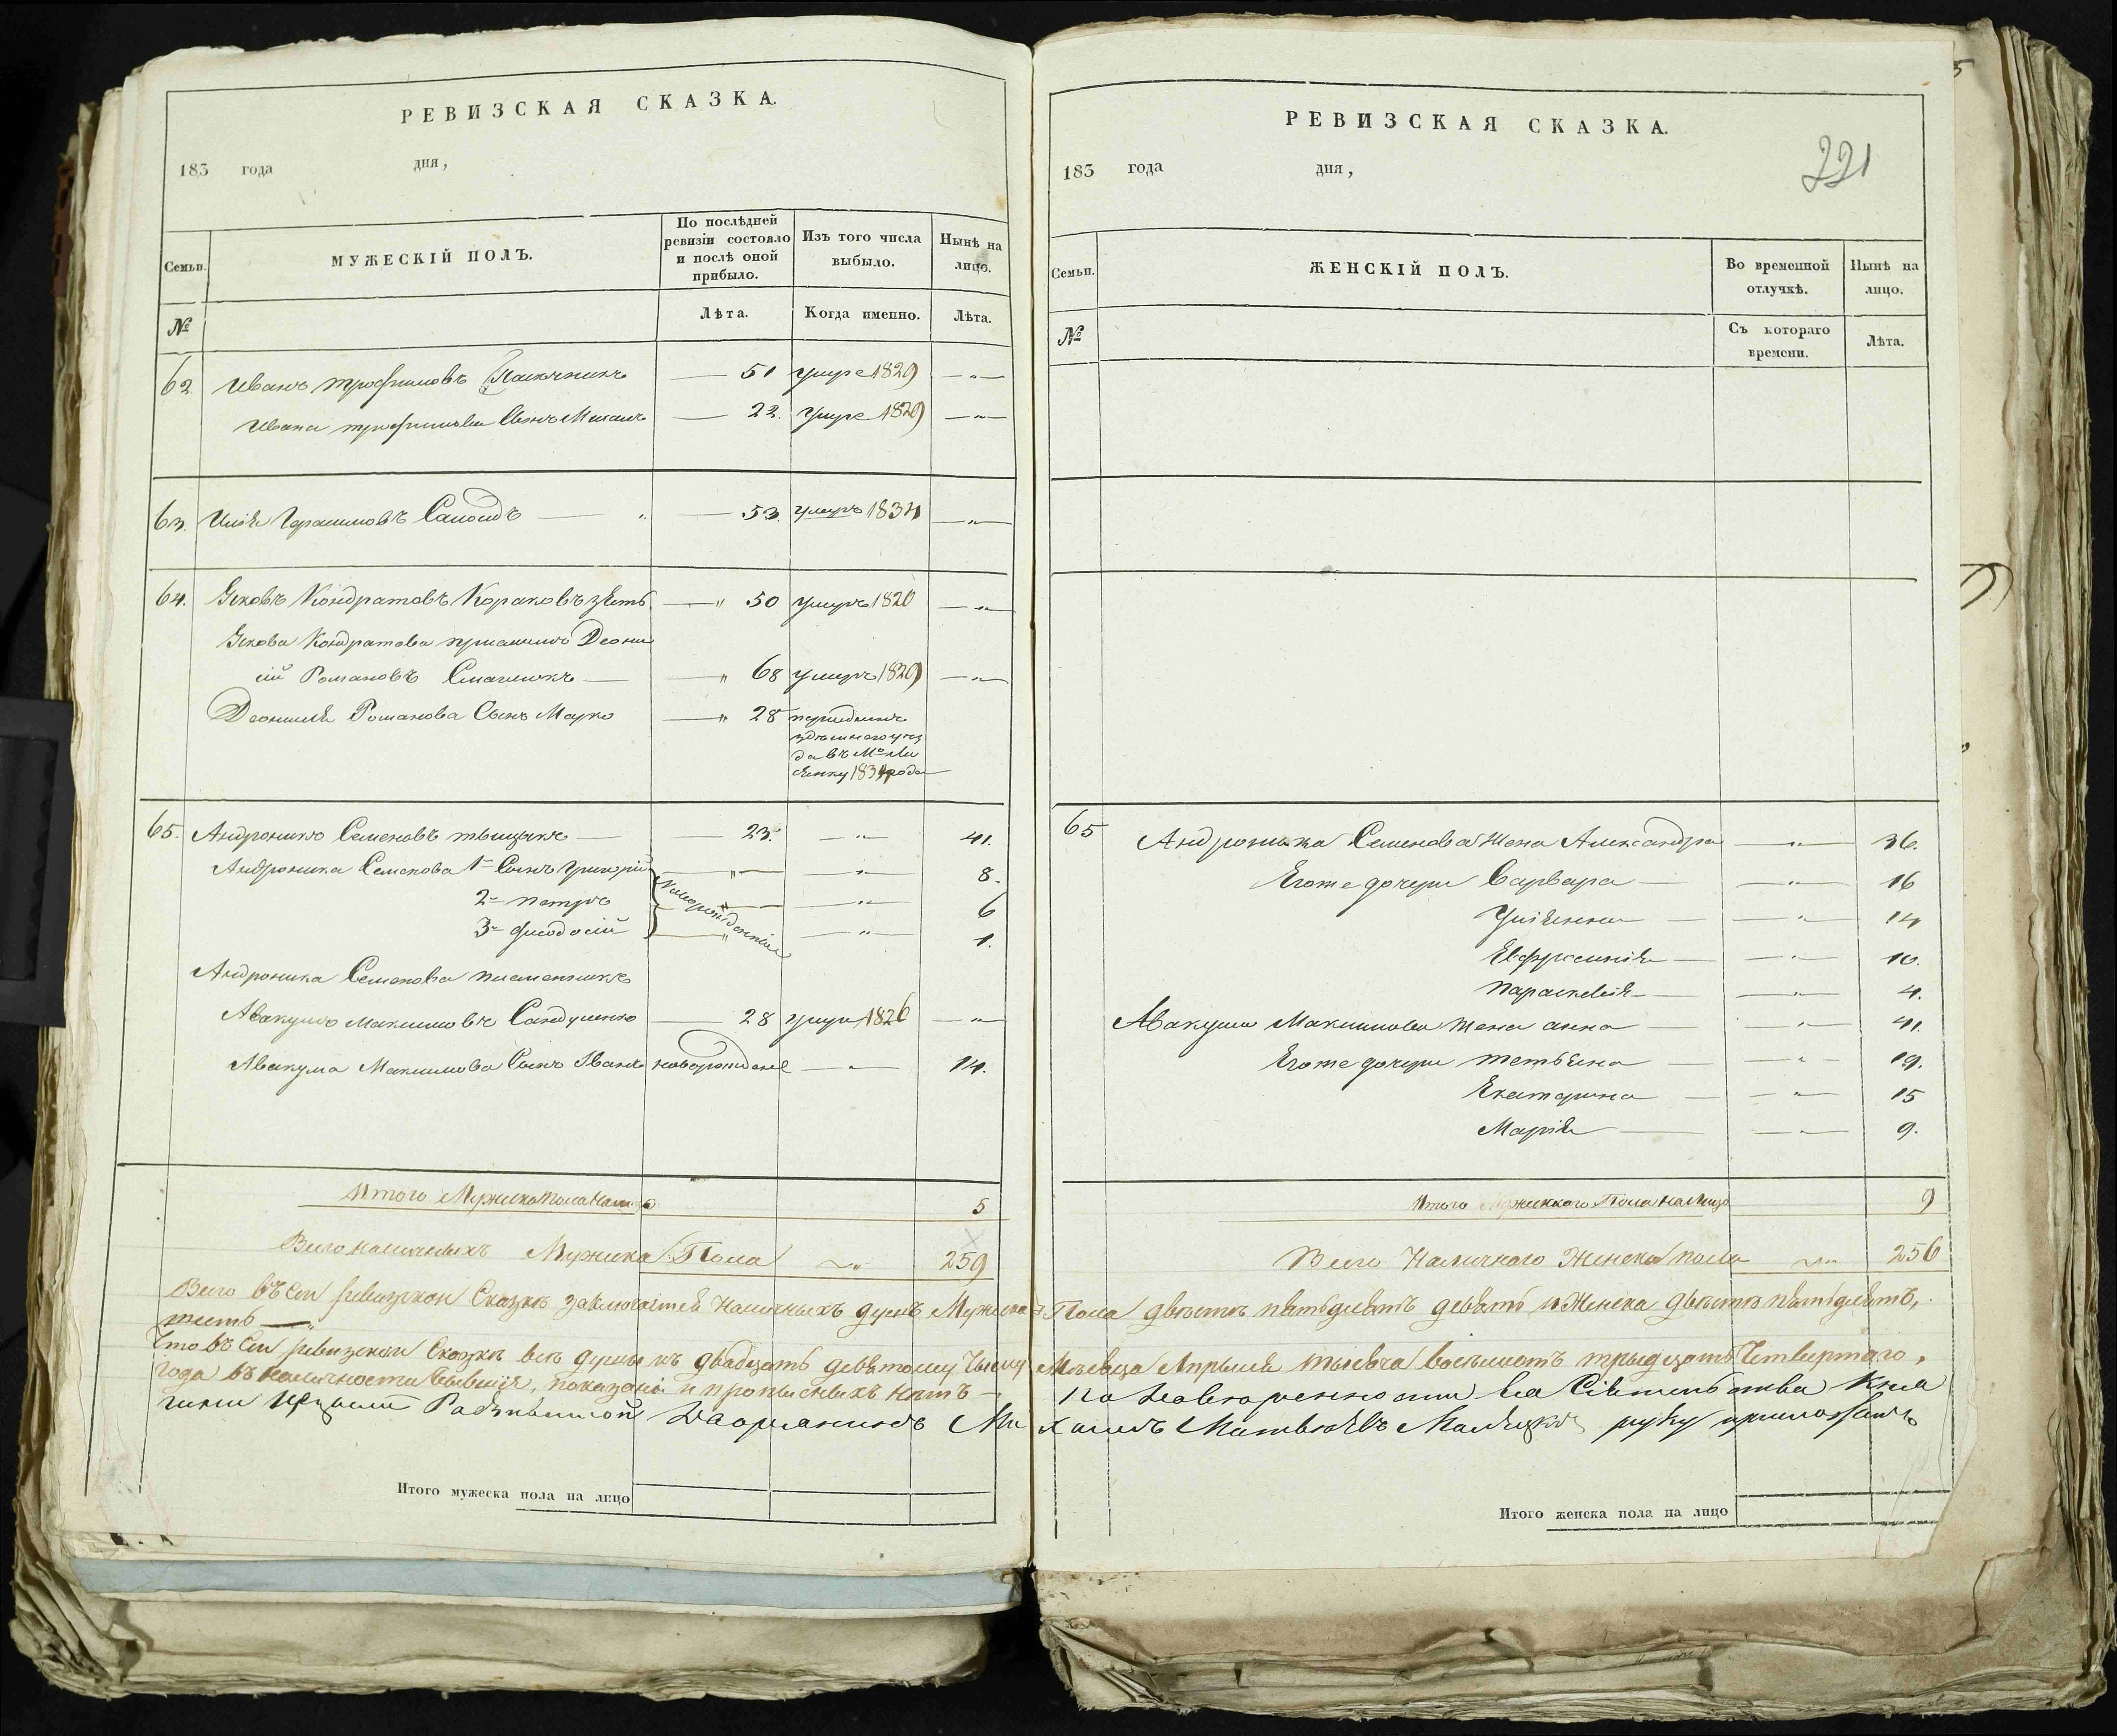 РЕВИЗСКАЯ СКАЗКА.
183 года дня,
Семьи.
МУЖЕСКІЙ ПОЛЪ.
По послѣдней ревизіи состояло и послѣ оной прибыло.
Изъ того числа выбыло.
Нынѣ на лицо.
№
Лѣта.
Когда именно.
Лѣта.
62. Иванъ Трофимовъ 51 умре 1829 — „ —
Ивана Трофимова Сынъ Михаилъ — 22. умре 1829 — „ —
63. Илія Герасимовъ — 53. умеръ 1834 — „ —
64. Яковъ Кондратовъ зять — „ 50 умеръ 1820 — „ —
Якова Кондратова Деони
сій Романовъ — „ 68 умеръ 1829 — „ —
Деонисія Романова Сынъ Марко — „ 28
здешнего уез
да въ
1834 года
65. Андроникъ Семеновъ — 23. — „ — 41.
Андроника Семенова 1й Сынъ Григорій — „ — — „ — 8.
2й Петръ — „ — 6
3й Феодосій — „ — — „ — 1.
Новорожденніи
Андроника Семенова племенникъ
Авакумъ Максимовъ — 28 умре 1826 — „ —
Авакума Максимова Сынъ Иванъ новорожденъ — „ — 14.
Итого Мужеска пола налицо 5
Всего наличныхъ Мужеска Пола „ 259
Итого мужеска пола на лицо
РЕВИЗСКАЯ СКАЗКА.
221
183 года дня,
Семьи.
ЖЕНСКІЙ ПОЛЪ.
Во временной отлучкѣ.
Нынѣ на лицо.
№
Съ котораго времени.
Лѣта.
65 Андроника Семенова Жена Александра — „ — 36.
Егоже дочери Варвара — „ — 16
Уліянна — „ — 14
Евфросинія — „ — 10.
Параскевія — „ — 4.
Авакума Максимова жена анна — „ — 41.
Егоже дочери Тетьяна — „ — 19.
Екатерина — „ — 15
Марія — „ — 9.
Итого Пола налицо 9
Всего Наличного Женска пола „ 256
Всего въ сей ревизкой Сказкѣ заключается Наличныхъ душъ Мужеска Пола двѣстѣ пятьдесятъ девять и Женска двѣстѣ пятьдесятъ,
шесть —
Что въ сей ревизской Сказкѣ всѣ души къ двадцать девятому Числу Мѣсяца Апрыля тысеча восемьсотъ трыдцать Четвертаго,
года въ наличности бывшія, показаны и прописныхъ нѣтъ — По Доверенности Ея Сіятельства Кня
гини Дворянинъ Михаилъ Матвѣевъ руку приложилъ
Итого женска пола на лицо